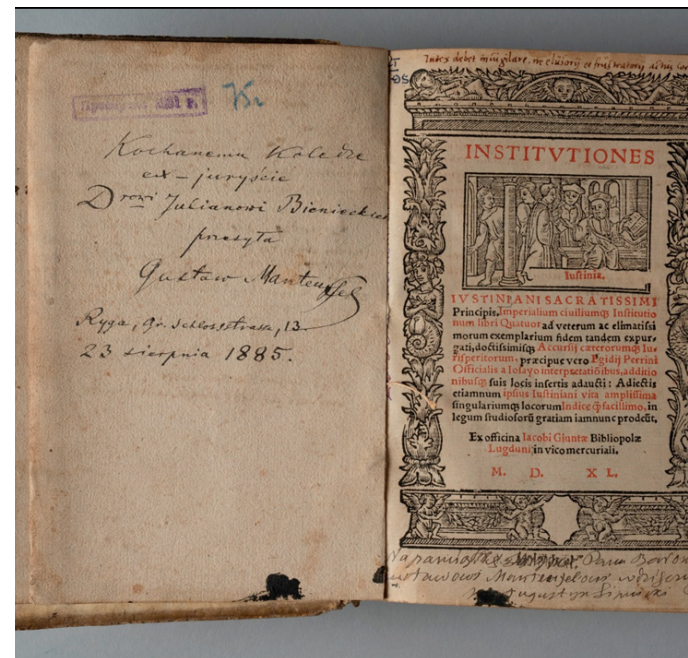 Kochanemu Koledze
ex-juryście
Drowi Julianowi Bienieckiemu
przesyła
Gustaw Manteuffel
Ryga, Gr. Schlossstrasse, 13.
23 sierpnia 1885.
INSTITVTIONES
Iustinia.
IVSTINIANI SACRATISSIMI
Principis, Imperialium ciuiliumq; Institutio
num libri Quatuor: ad veterum ac elimatissi
morum exemplarium fidem tandem expur-
gati, doctissimisq; Accursij cæterorumq; Iu-
risperitorum, præcipue vero Egidij Perrini
Officialis a Iosayo interpretatiōibus, additio
nibusq; suis locis insertis adaucti: Adiectis
etiamnum ipsius Iustiniani vita amplissima
singulariumq; locorum Indice q̄ facillimo, in
legum studiosorū gratiam iamnunc prodeūt.
Ex officina Iacobi Giuntæ Bibliopolæ
Lugduni in vico mercuriali.
M. D. XL.
Na pamiątkę Panu
Manteuflowi
Augustyn Lipiński